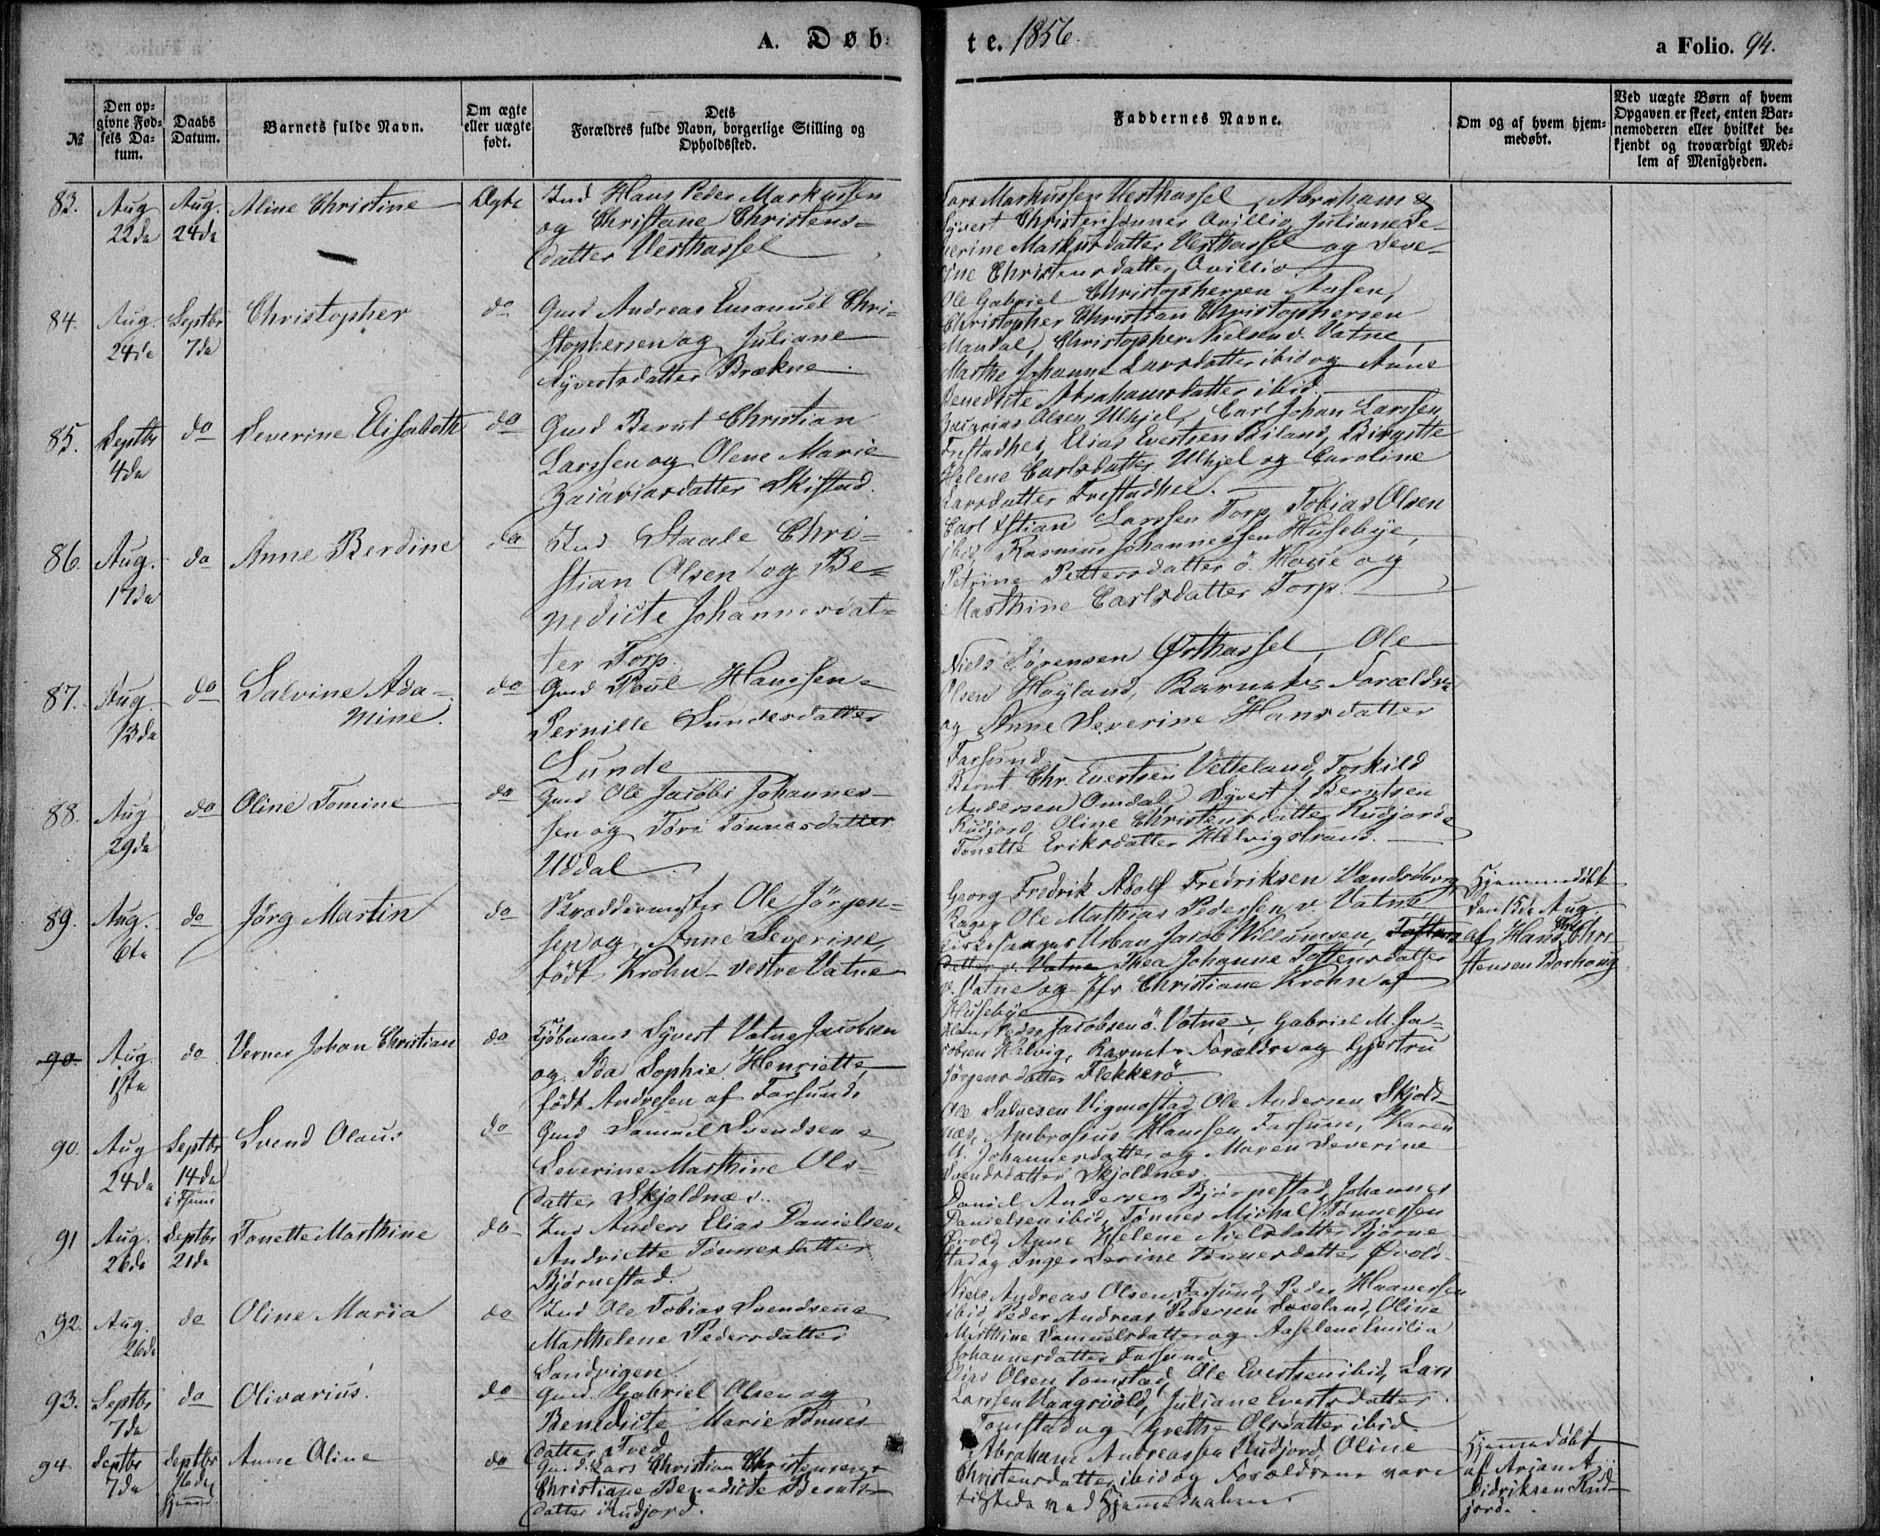 A. Døb-
te. 1856.
a Folio. 94.
№
Den op-
givne Fød-
sels Da-
tum.
Daabs
Datum.
Barnets fulde Navn.
Om ægte
eller uægte
født.
Dets
Forældres fulde Navn, borgerlige Stilling og
Opholdssted.
Faddernes Navne.
Om og af hvem hjem-
medøbt.
Ved uægte Børn af hvem
Opgaven er skeet, enten Bar-
nemoderen eller hvilket be-
kjendt og troværdigt Med-
lem af Menigheden.
83.
Aug
22de
Aug.
24de
Aline Christine
Ægte
Ind Hans Peder Markussen
og Christiane Christens-
datter Vesthassel
Lars Markussen Vesthassel, Abraham &
Syvert Christensønner Qvillio, Juliane Se-
verine Markusdatter Vesthassel og Seve-
rine Christensdatter Qvillio
84.
Aug.
24de
Septbr
7de
Christopher
do
Gmd Andreas Emanuel Chri-
stophersen og Juliane
Syvertsdatter Brækne.
Ole Gabriel Christophersen Aasen,
Christopher Christian Christophersen
Mandal, Christopher Nielsen v. Vatne,
Marthe Johanne Larsdatter ibid og Anne
Benedicte Abrahamsdatter ibid.
85.
Septbr
4de
do
Severine Elisabeth
do
Gmd Bernt Christian
Larssen og Olene Marie
Zacariasdatter Skistad.
Zacarias Olsen Ulhjel, Carl Johan Larssen
Frestadhei, Elias Evertsen Biland, Birgitte
Helene Carlsdatter Ulhjel og Caroline
Larsdatter Frestadhei.
86.
Aug.
17de
do
Anne Berdine
do
Ind Staale Chri-
stian Olsen og Be-
nedicte Johannesdat-
ter Torp.
Carl Xstian Larssen Torp, Tobias Olsen
ibid, Rasmus Johannessen Husebye,
Petrine Pettersdatter ö. Houe og
Marthine Carlsdatter Torp.
87.
Aug.
13de
do
Salvine Ada-
mine.
do
Gmd Poul Hanssen &
Pernille Sundesdatter
Lunde
Niels Sørensen Østhassel, Ole
Olsen Høyland, Barnets Forældre
og Anne Severine Hansdatter
Farsund
88.
Aug
29de
do
Oline Tomine
do
Gmd Ole Jacobs Johannes-
sen og Tøri Tønnesdatter
Uddal.
Bernt Chr. Evertsen Vetteland, Torkild
Andersen Omdal, Syvert J. Berntsen
Rudjord, Oline Christensdatter Rudjord &
Tonette Eriksdatter Helvigstrand.
89.
Aug.
6te
do
Jørg Martin
do
Skræddermester Ole Jørgen-
sen og Anne Severine,
født Krohn - vestre Vatne
Georg Fredrik Adolf Fredriksen Vandsborg,
Bager Ole Mathias Pedersen v. Vatne
Kirkesanger Urban Jacob Willumsen,
Thea Johanne Toftensdatter
v. Vatne og Jfr Christiane Krohn af
Husebye
Hjemmedøbt
den 15de Aug.
af Hans Chri-
stensen Borhaug
90.
Aug
1ste
do
Verner Johan Christian
do
Kjöbmand Syvert Vatne Jacobsen
og Ida Sophie Henriette,
født Andresen af Farsund.
Hans Peder Jacobsen ö. Vatne, Gabriel M. Ja-
cobsen Helvig, Barnets Forældre og Gjertru
Jørgensdatter Flekkerö
90.
Aug
24de
Septbr
14de
i Fsund
Svend Olaus
do
Gmd Samuel Svendsen &
Severine Marthine Ols-
datter Skjoldnæs.
Ole Salvesen Vigmostad, Ole Andersen Skjold-
næs, Ambrosius Hanssen, Farsund, Karen
M. Johannesdatter og Maren Severine
Svendsdatter Skjoldnæs.
91
Aug.
26de
Septbr
21de
Tonette Marthine
do
Ind Anders Elias Danielsen &
Andriette Tønnesdatter
Bjørnestad.
Daniel Andersen Bjørnestad, Johannes
Danielsen ibid, Tønnes Michal Tønnessen
Øvold, Anne Helene Nielsdatter Bjørne-
stad og Inger Serine Tønnesdatter Øvold.
92.
Aug.
26de
do
Oline Maria
do
Ind Ole Tobias Svendsen &
Marthelene Pedersdatter
Sandvigen.
Niels Andreas Olsen Farsund, Peder Haaverssen
ibid, Peder Andreas Pedersen Loveland, Oline
Marthine Samuelsdatter og Aaselene Emilia
Johannesdatter Farsund
93.
Septbr
7de
do
Olivarius.
do
Gmd Gabriel Olsen og
Benedicte Marie Tønnes-
datter Tved
Elias Olsen Tomstad, Ole Evertsen ibid, Lars
Larssen Haagevold, Juliane Evertsdatter
Tomstad og Grethe Olsdatter ibid.
94.
Septbr
7de
Septbr
16de
hjemme
Anne Oline
do
Gmd. Lars Christian Christensen &
Christiane Benedicte Bernts-
datter Rudjord.
Abraham Andreassen Rudjord, Oline
Christensdatter ibid og Forældrene vare
tilstede ved Hjemmedaaben.
Hjemmedøbt
af Arian A.
Didriksen Rud-
jord.